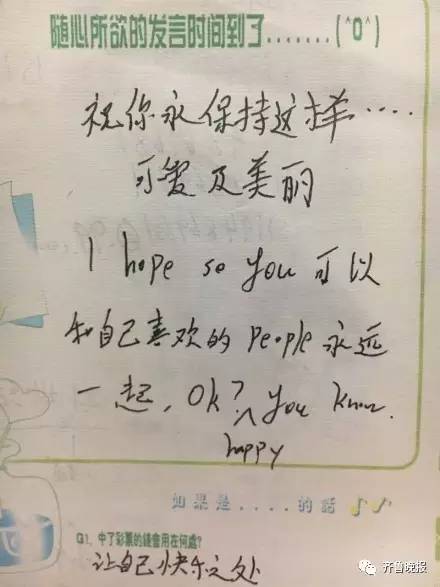 随心所欲的发言时间到了.......(^O^)
祝你永保持这样....
可爱及美丽
I hope so you 可以
和自己喜欢的 People 永远
一起, Ok? you know.
happy
如果是....的話
Q1. 中了彩票的錢會用在何處?
让自己快乐之处
齐鲁晚报